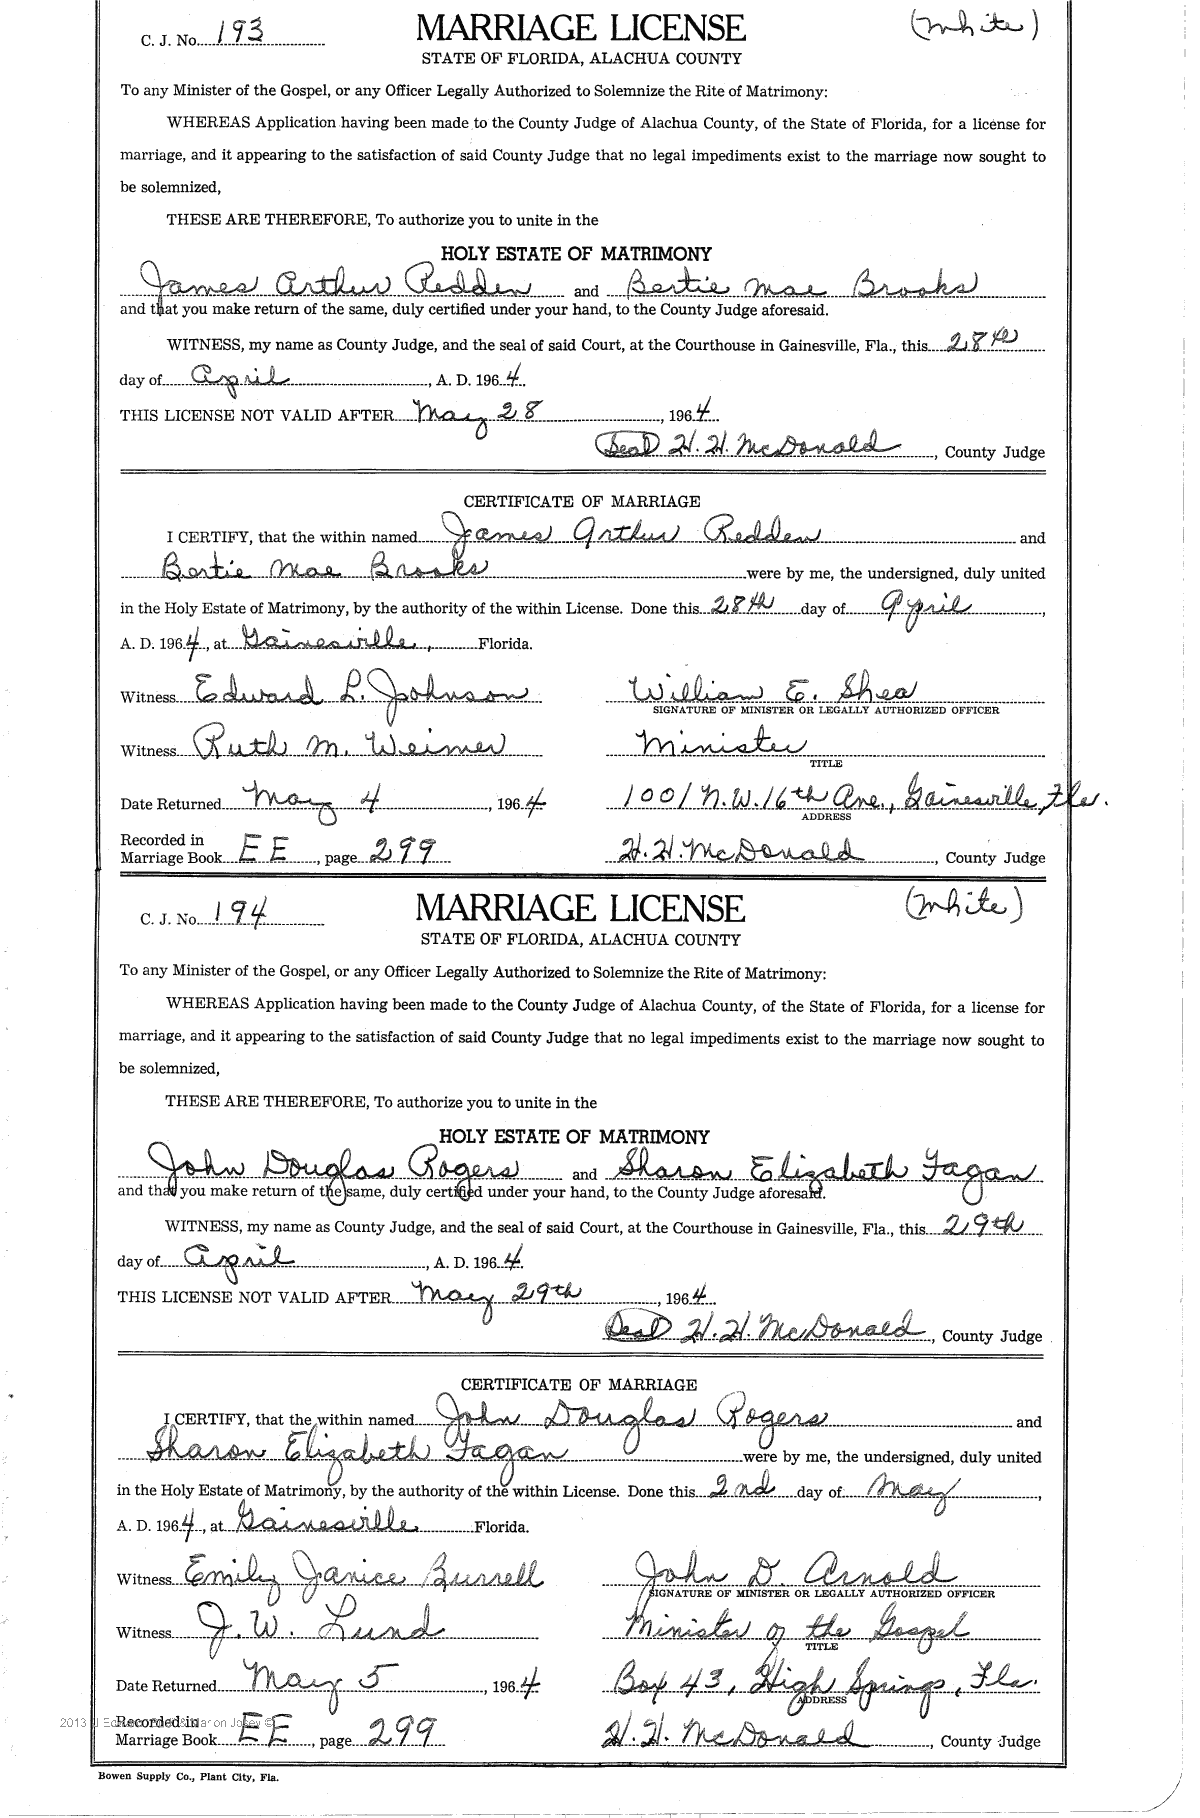 C. J. No. 193 MARRIAGE LICENSE (White)
STATE OF FLORIDA, ALACHUA COUNTY
To any Minister of the Gospel, or any Officer Legally Authorized to Solemnize the Rite of Matrimony:
WHEREAS Application having been made to the County Judge of Alachua County, of the State of Florida, for a license for
marriage, and it appearing to the satisfaction of said County Judge that no legal impediments exist to the marriage now sought to
be solemnized,
THESE ARE THEREFORE, To authorize you to unite in the
HOLY ESTATE OF MATRIMONY
James Arthur Redden and Bertie Mae Brooks
and that you make return of the same, duly certified under your hand, to the County Judge aforesaid.
WITNESS, my name as County Judge, and the seal of said Court, at the Courthouse in Gainesville, Fla., this 28th
day of April, A. D. 1964.
THIS LICENSE NOT VALID AFTER May 28, 1964
(Seal) H. H. McDonald, County Judge
CERTIFICATE OF MARRIAGE
I CERTIFY, that the within named James Arthur Redden and
Bertie Mae Brooks were by me, the undersigned, duly united
in the Holy Estate of Matrimony, by the authority of the within License. Done this 28th day of April,
A. D. 1964, at Gainesville, Florida.
Witness Edward L. Johnson William E. Shea
SIGNATURE OF MINISTER OR LEGALLY AUTHORIZED OFFICER
Witness Ruth M. Weimer Minister
TITLE
Date Returned May 4, 1964 1001 N.W. 16th Ave., Gainesville, Fla.
ADDRESS
Recorded in
Marriage Book EE, page 299 H. H. McDonald, County Judge
C. J. No. 194 MARRIAGE LICENSE (White)
STATE OF FLORIDA, ALACHUA COUNTY
To any Minister of the Gospel, or any Officer Legally Authorized to Solemnize the Rite of Matrimony:
WHEREAS Application having been made to the County Judge of Alachua County, of the State of Florida, for a license for
marriage, and it appearing to the satisfaction of said County Judge that no legal impediments exist to the marriage now sought to
be solemnized,
THESE ARE THEREFORE, To authorize you to unite in the
HOLY ESTATE OF MATRIMONY
John Douglas Rogers and Sharon Elizabeth Fagan
and that you make return of the same, duly certified under your hand, to the County Judge aforesaid.
WITNESS, my name as County Judge, and the seal of said Court, at the Courthouse in Gainesville, Fla., this 29th
day of April, A. D. 1964.
THIS LICENSE NOT VALID AFTER May 29th, 1964.
(Seal) H. H. McDonald, County Judge
CERTIFICATE OF MARRIAGE
I CERTIFY, that the within named John Douglas Rogers and
Sharon Elizabeth Fagan were by me, the undersigned, duly united
in the Holy Estate of Matrimony, by the authority of the within License. Done this 2nd day of May,
A. D. 1964, at Gainesville Florida.
Witness Emily Janice Burrell John D. Arnold
SIGNATURE OF MINISTER OR LEGALLY AUTHORIZED OFFICER
Witness J. W. Lund Minister of the Gospel
TITLE
Date Returned May 5, 1964 Box 43, High Springs, Fla.
ADDRESS
Recorded in
Marriage Book EE, page 299 H. H. McDonald, County Judge
Bowen Supply Co., Plant City, Fla.
2013